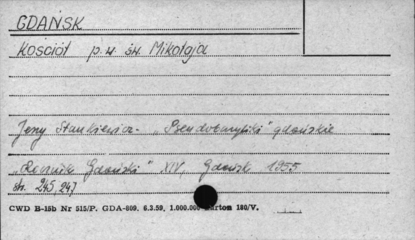 GDAŃSK
Kościół p.w. św. Mikołaja
Jerzy Stankiewicz - „Pseudobazyliki" gdańskie
„Rocznik Gdański" XIV, Gdańsk 1955
str. 245, 247
CWD B-15b Nr 515/P. GDA-809. 6.3.59, 1.000.000 karton 180/V.